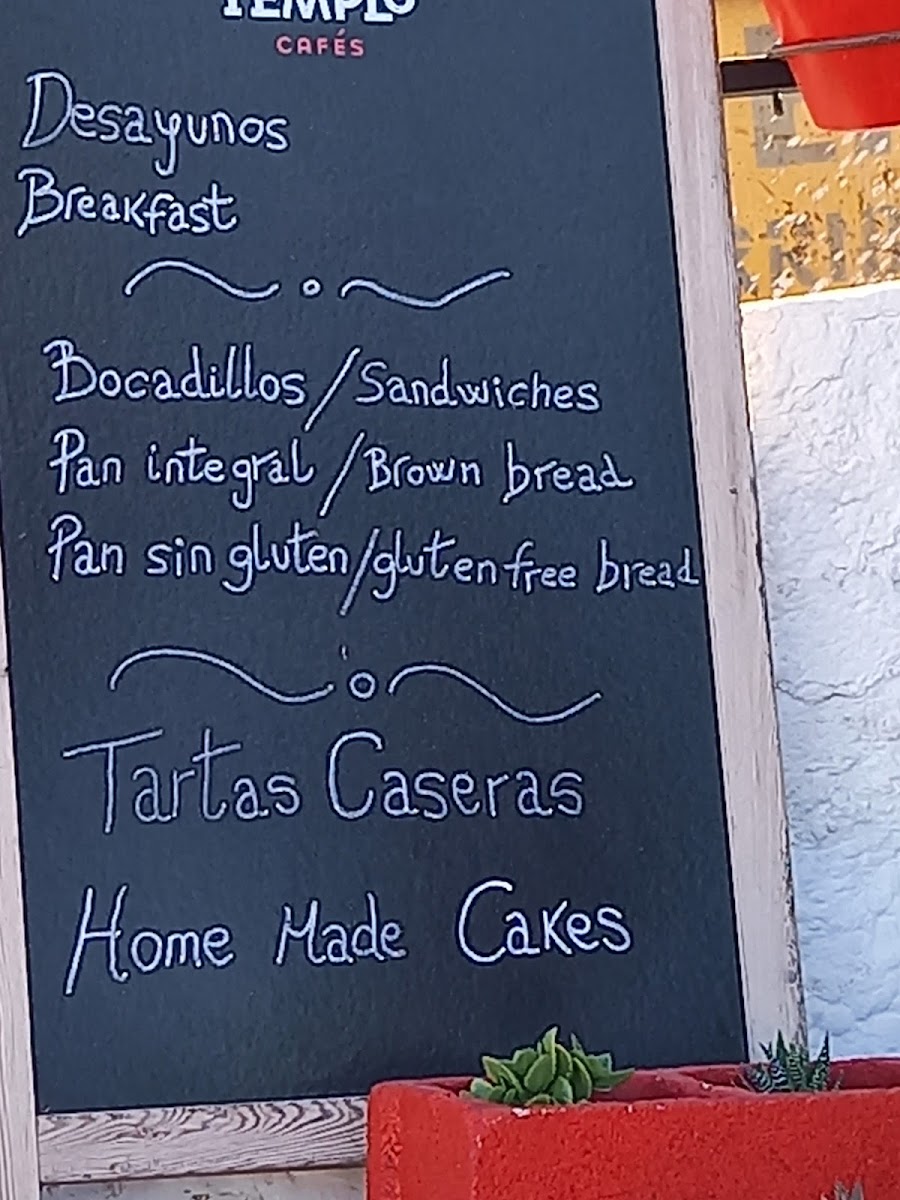 TEMPLO
CAFÉS
Desayunos
Breakfast
Bocadillos/Sandwiches
Pan integral/Brown bread
Pan sin gluten/gluten free bread
Tartas Caseras
Home Made Cakes